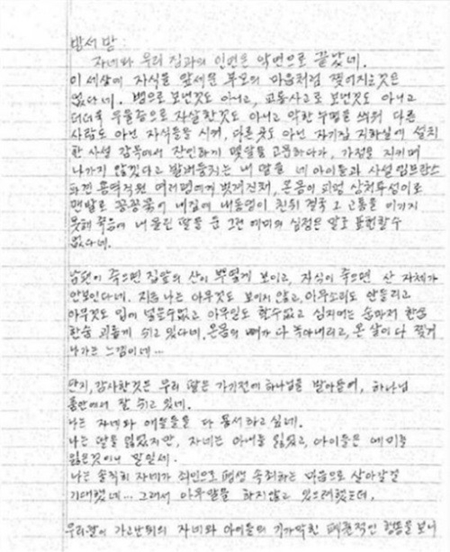 방서방
자네와 우리 집과의 인연은 악연으로 끝났네.
이 세상에 자식을 앞세운 부모의 마음처럼 찢어지는것은
없다네. 병으로 보낸것도 아니고, 교통사고로 보낸것도 아니고
더더욱 우울증으로 자살한것도 아니고 악한 누명을 씌워 다른
사람도 아닌 자식들을 시켜, 다른곳도 아닌 자기집 지하실에 설치
한 사설 감옥에서 잔인하게 몇달을 고문하다가, 가정을 지키며
나가지 않겠다고 발버둥치는 내 딸을 네 아이들과 사설 엠브란스
파견 용역직원 여러명에게 벗겨진채, 온몸이 피멍 상처투성이로
맨발로 꽁꽁묶여 내집에 내동댕이 친뒤 결국 그 고통을 이기지
못해 죽음에 내 몰린 딸을 둔 그런 에미의 심정은 말로 표현할수
없다네.
남편이 죽으면 집앞의 산이 뿌옇게 보이고, 자식이 죽으면 산 자체가
안보인다네. 지금 나는 아무것도 보이지 않고, 아무소리도 안들리고
아무것도 입에 넣을수없고 아무일도 할수없고 심지어는 숨마저 한숨
한숨 괴롭게 쉬고 있다네. 온몸의 뼈가 다 녹아내리고, 온 살이 다 찢겨
나가는 느낌이네...
단지, 감사한것은 우리 딸은 가기전에 하나님을 받아들여, 하나님
품안에서 잘 쉬고 있네.
나는 자네와 애들을 다 용서하고 싶네.
나는 딸을 잃었지만, 자네는 아내를 잃었고, 아이들은 에미를
잃은것이니 말일세.
나는 솔직히 자네가 죄인으로 평생 속죄하는 마음으로 살아갈걸
기대했네... 그래서 아무말을 하지않고 있으려했는데,
우리딸이 가고난뒤의 자네와 아이들의 기가막힌 패륜적인 행동을 보니